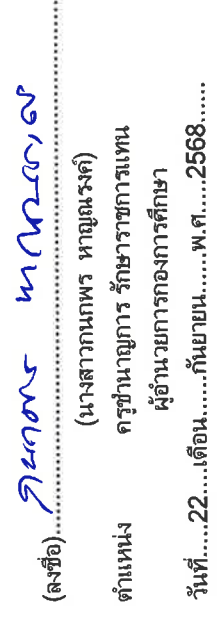 (ลงชื่อ)
(นางสาวกนกพร หาญณรงค์)
ตำแหน่ง ครูชำนาญการ รักษาราชการแทน
ผู้อำนวยการกองการศึกษา
วันที่.....22.....เดือน......กันยายน......พ.ศ.....2568......